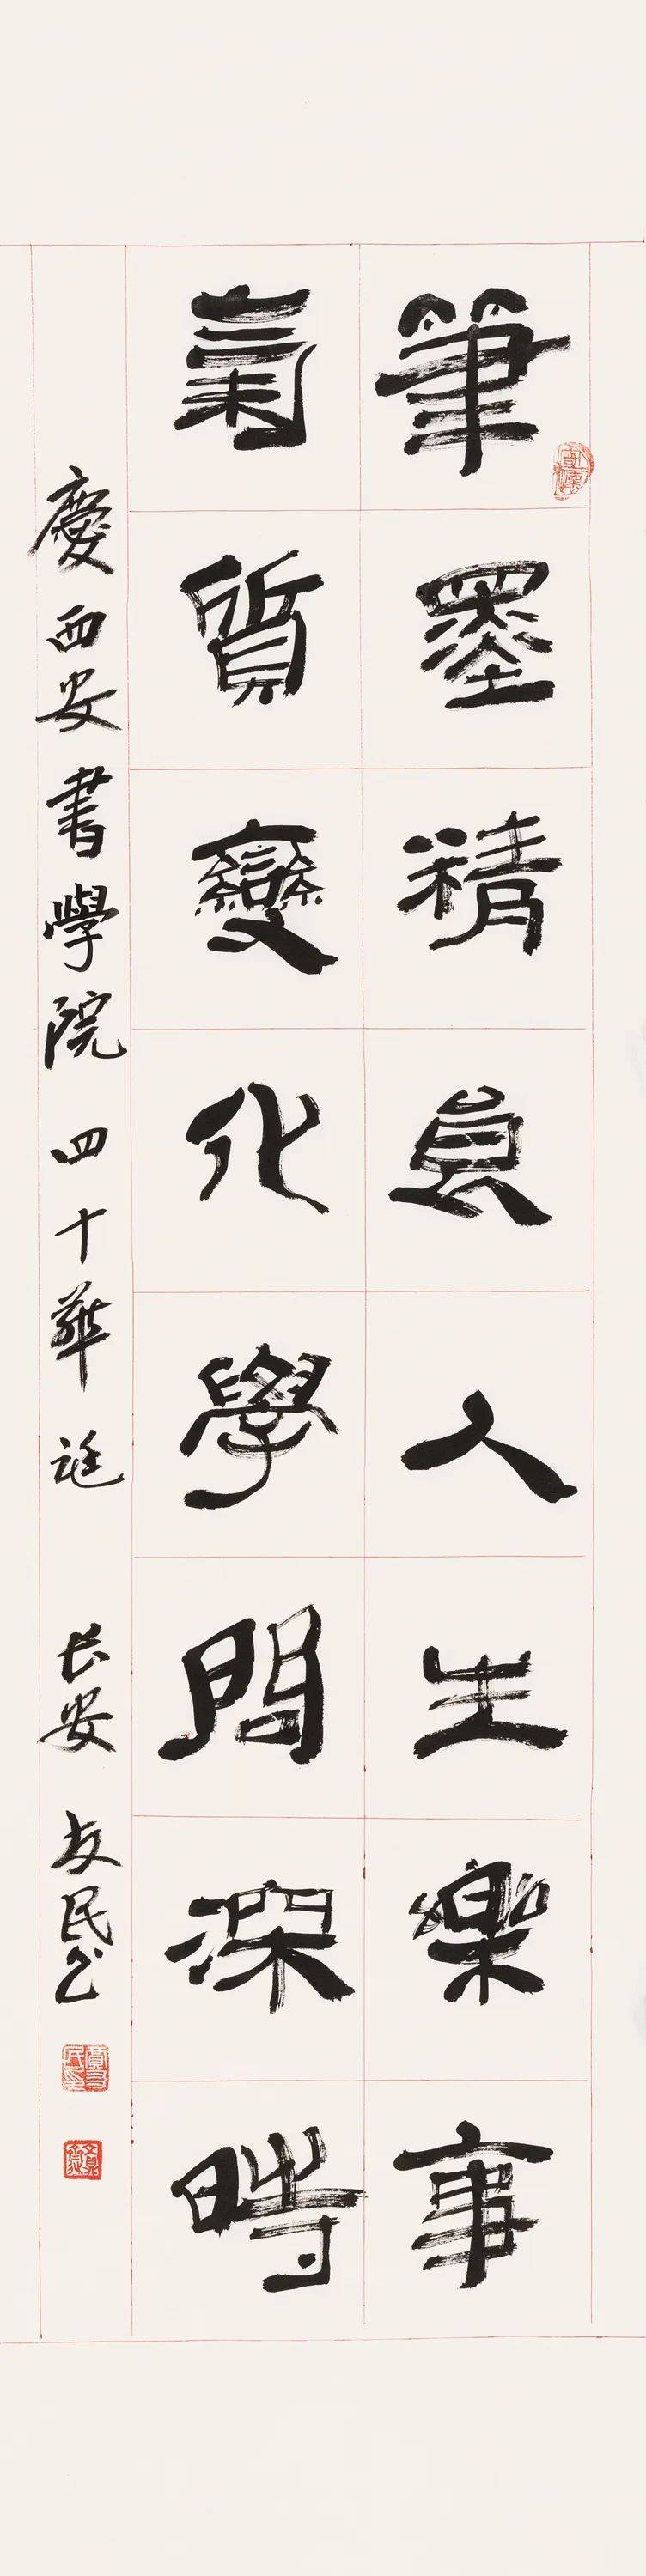 筆墨精良人生樂事
氣質變化學問深時
慶西安書學院四十華誕 長安友民